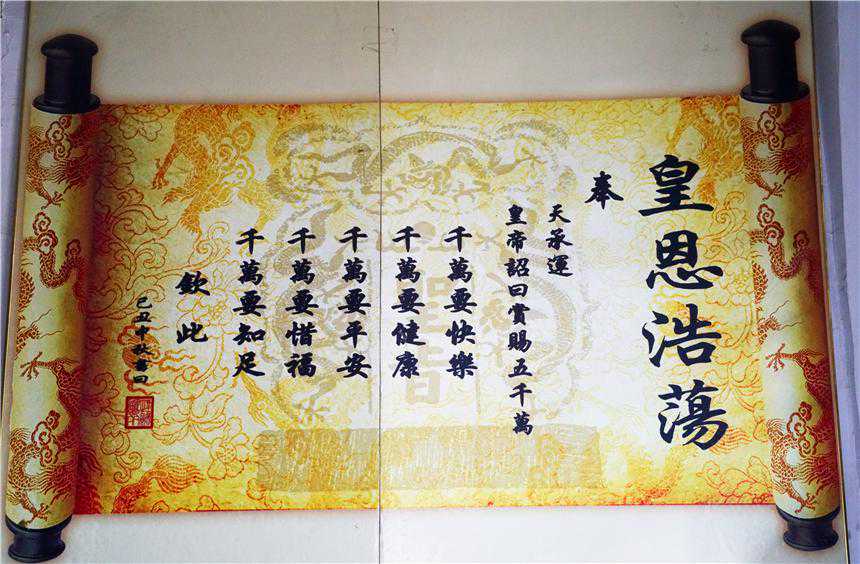 皇恩浩蕩
奉
天承運
皇帝詔曰賞賜五千萬
千萬要快樂
千萬要健康
千萬要平安
千萬要惜福
千萬要知足
欽此
己丑中秋書曰
聖旨